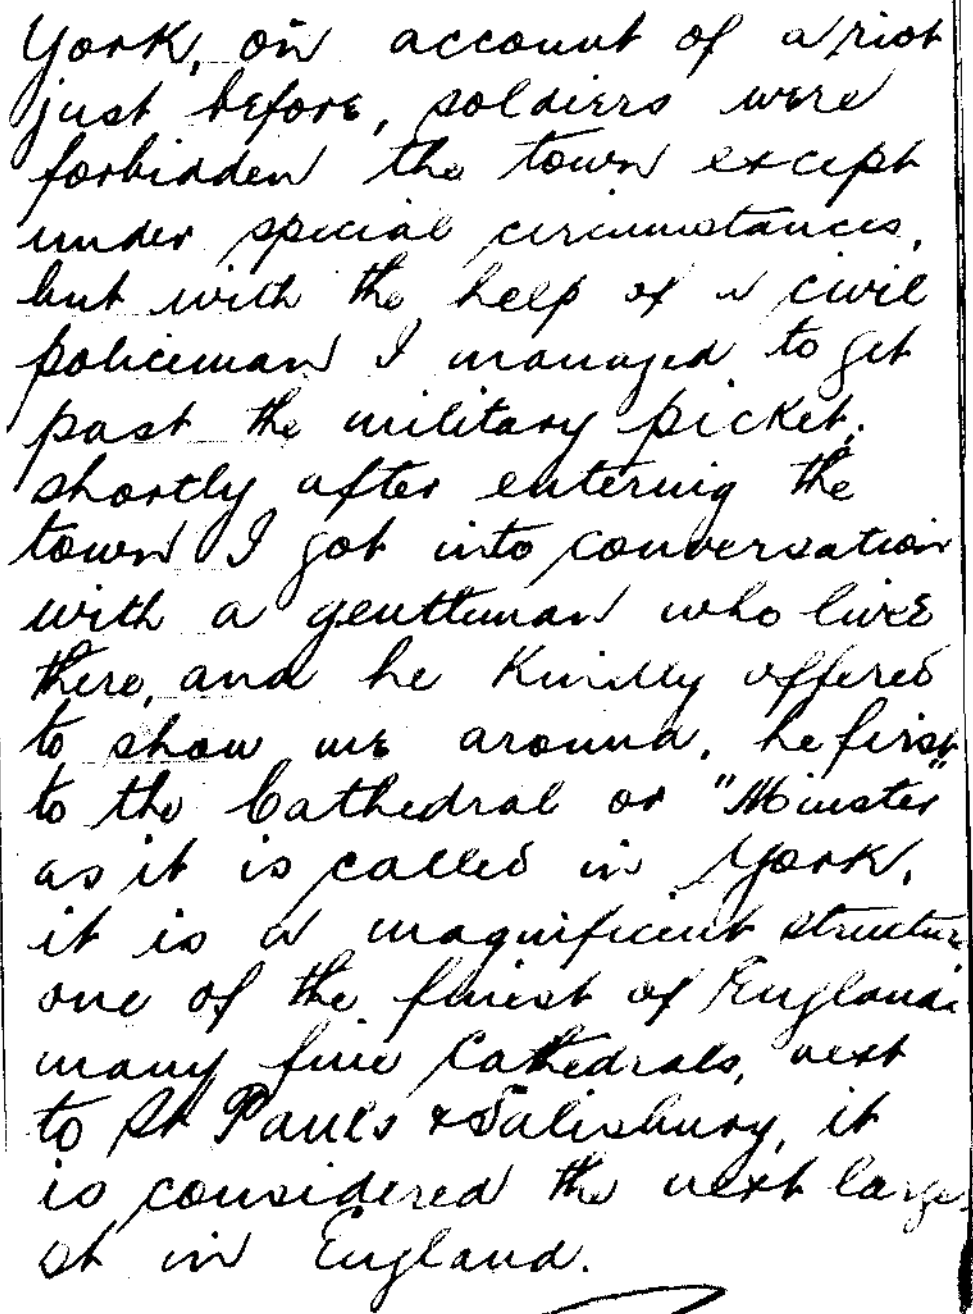 York, on account of a riot
just before, soldiers were
forbidden the town except
under special circumstances,
but with the help of a civil
policeman I managed to get
past the military picket.
shortly after entering the
town I got into conversation
with a gentleman who lives
there, and he kindly offered
to show me around, he first
to the Cathedral or "Minster"
as it is called in York,
it is a magnificent structure
one of the finest of Englands
many fine Cathedrals, next
to St Pauls & Salisbury, it
is considered the next large
st in England.